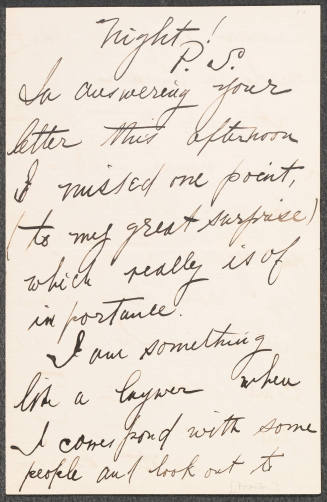 Night!
P.S.
In answering your
letter this afternoon
I missed one point,
(to my great surprise)
which really is of
importance.
I am something
like a lawyer when
I correspond with some
people and look out to